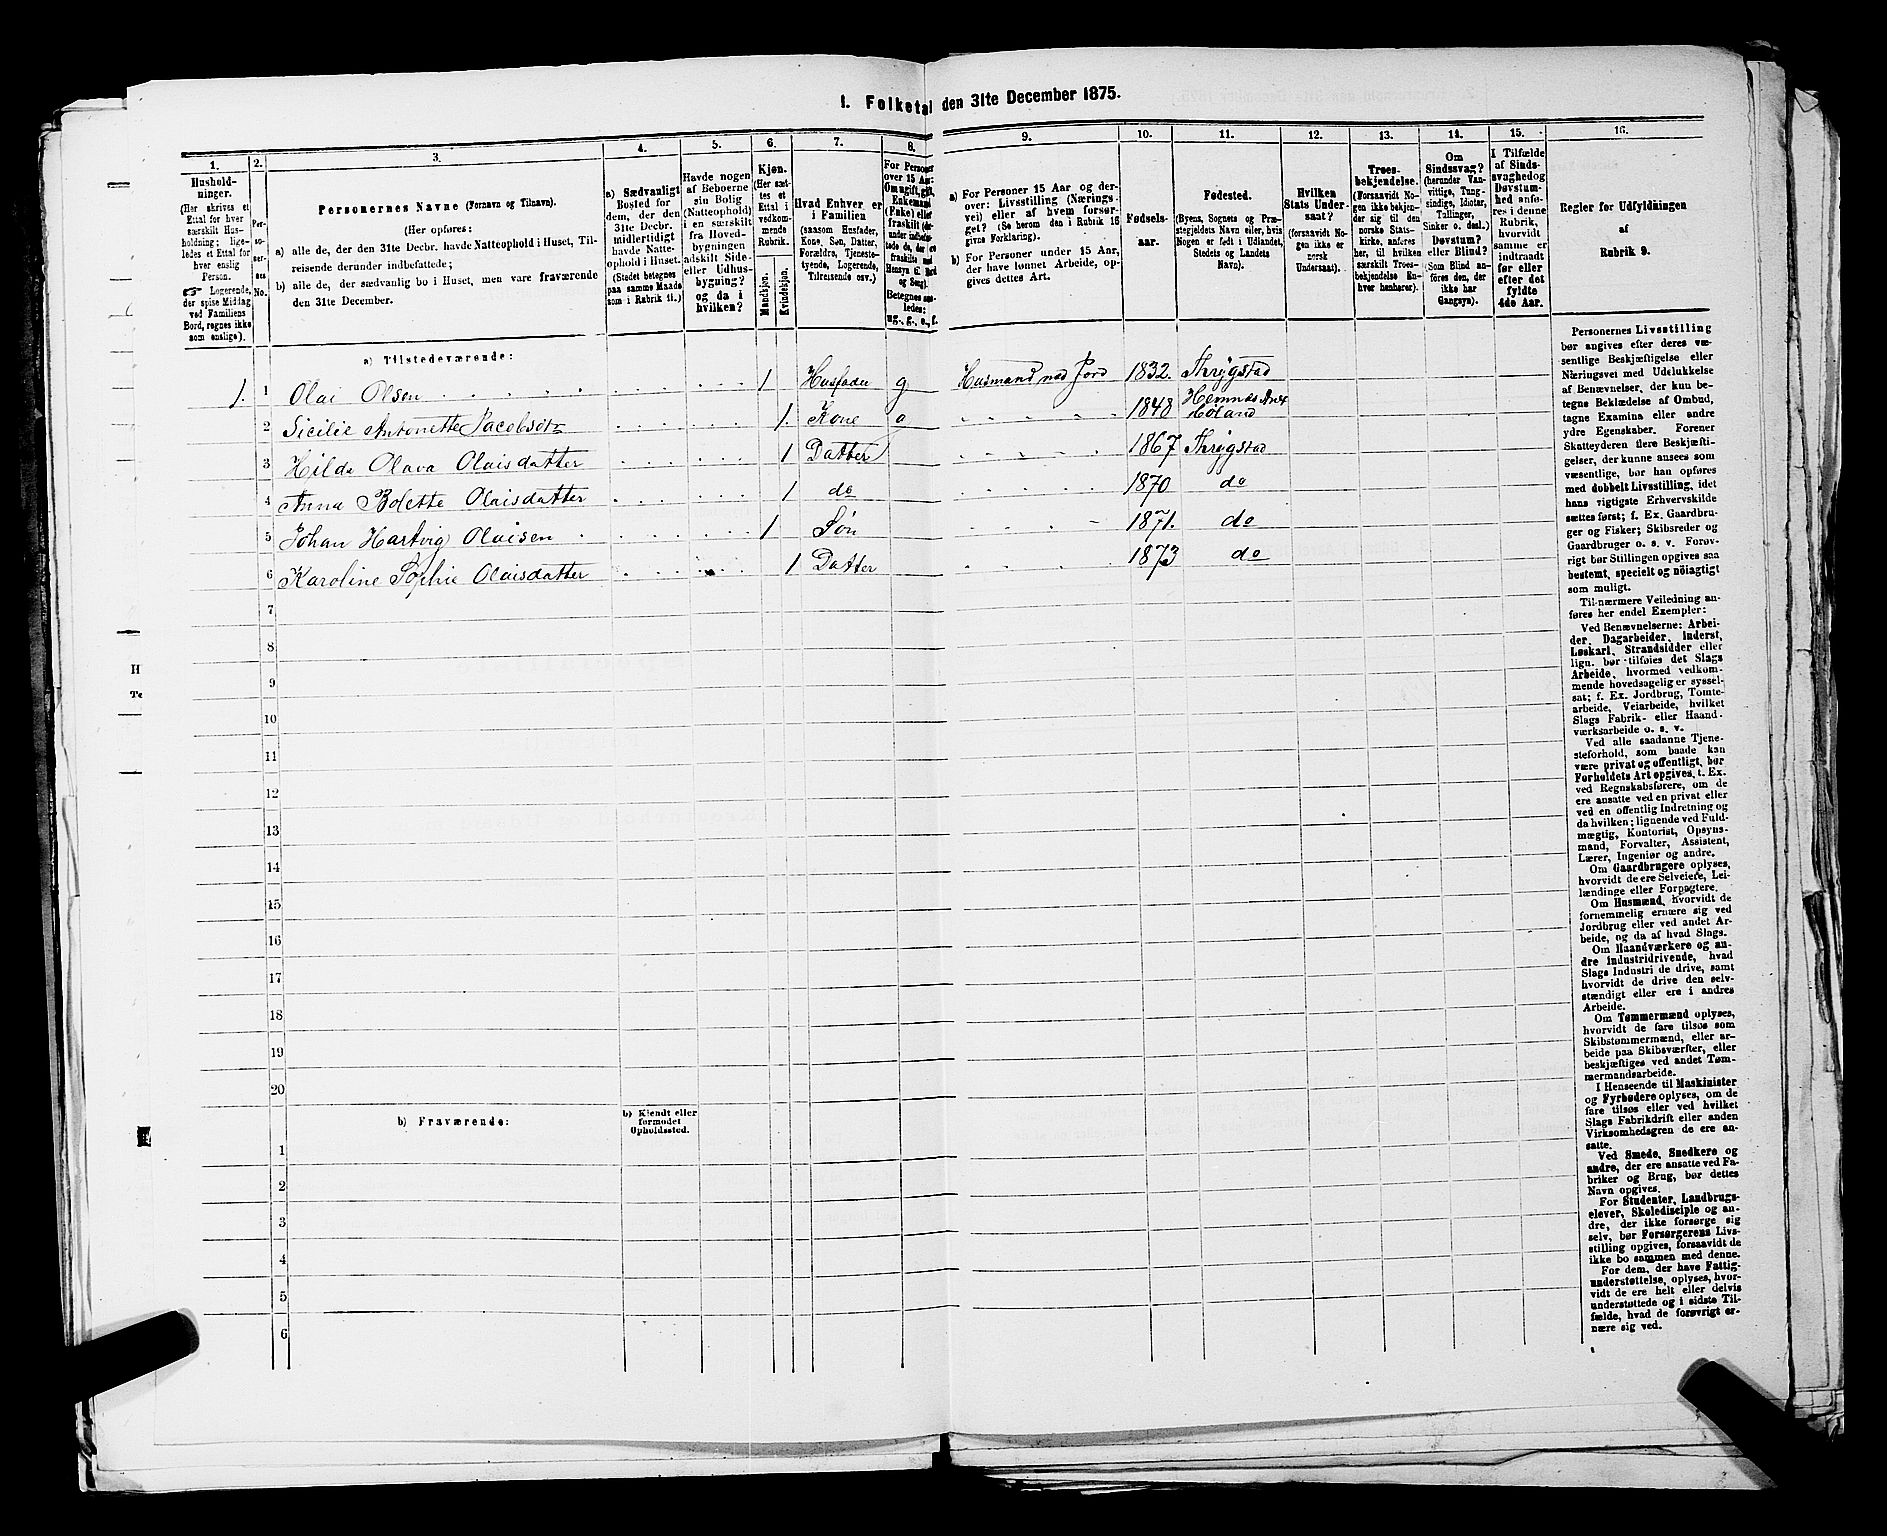 1. Folketal den 31te December 1875.
1.
Husholdninger.
(Her skrives et
Ettal for hver
særskilt Husholdning; ligeledes
et Ettal for
hver enslig
Person.
☞ Logerende,
der spise Middag
ved Familiens
Bord, regnes ikke
som enslige).
2.
Personernes
No.
3.
Personernes Navne (Fornavn og Tilnavn).
(Her opføres:
a) alle de, der den 31te Decbr. havde Natteophold i Huset, Tilreisende
derunder indbefattede;
b) alle de, der sædvanlig bo i Huset, men vare fraværende
den 31te December.
4.
a) Sædvanligt
Bosted for
dem, der den
31te Decbr.
midlertidigt
havde Natteophold
i Huset.
(Stedet betegnes
paa samme Maade
som i Rubrik 11.)
5.
Havde nogen
af Beboerne
sin Bolig
(Natteophold)
i en særskilt
fra Hovedbygningen
adskilt Side-
eller Udhusbygning?
og da i
hvilken?
6.
Kjøn.
(Her sættes
et
Ettal i
vedkommende
Rubrik.
Mandkjøn.
Kvindekjøn.
7.
Hvad Enhver er
i Familien
(saasom Husfader,
Kone, Søn, Datter,
Forældre, Tjenestetyende,
Logerende,
Tilreisende osv.)
8.
For Personer
over 15 Aar:
Om ugift, gift,
Enkemand
(Enke) eller
fraskilt
Betegnes saaledes:
ug., g., e., f.
9.
a) For Personer 15 Aar og derover:
Livsstilling (Næringsvei)
eller af hvem forsørget?
(Se herom den i Rubrik 16
givne Forklaring).
b) For Personer under 15 Aar,
der have lønnet Arbeide, opgives
dettes Art.
10.
Fødselsaar.
11.
Fødested.
(Byens, Sognets og Præstegjeldets
Navn eller, hvis
Nogen er født i Udlandet,
Stedets og Landets
Navn).
12.
Hvilken
Stats Undersaat?
(forsaavidt Nogen
ikke er
norsk
Undersaat).
13.
Troesbekjendelse.
(Forsaavidt Nogen
ikke bekjender
sig til den
norske Statskirke,
anføres
her, til hvilken
særskilt Troesbekjendelse
Enhver
henhører).
14.
Om
Sindssvag?
(herunder Vanvittige,
Tungsindige,
Idioter,
Tullinger,
Sinker o. desl.)
Døvstum?
eller Blind?
(Som Blind anføres
den, der
ikke har
Gangsyn).
15.
I Tilfælde
af Sindssvaghed
og
Døvstumhed
anføres
i denne
Rubrik,
hvorvidt
samme er
indtraadt
før eller
efter det
fyldte
4de Aar.
16.
Regler for Udfyldningen
af
Rubrik 9.
a) Tilstedeværende:
1. 1 Olai Olsen 1 Husfader g Husmand med Jord 1832. Thrygstad
2 Sicilie Antonette Jacobsdtr 1. Kone 1848 Hemnæs Anex Høland
3 Hilda Olava Olaisdatter 1 Datter 1867 Thrygstad
4 Anna Bolette Olaisdatter 1 do 1870 do
5 Johan Hartvig Olaisen 1 Søn 1871. do
6 Karoline Sophie Olaisdatter 1 Datter 1873 do
7
8
9
10
11
12
13
14
15
16
17
18
19
20
b) Fraværende:
b) Kjendt eller
formodet
Opholdssted.
1
2
3
4
5
6
Personernes Livsstilling
bør angives efter deres væsentlige
Beskjæftigelse eller
Næringsvei med Udelukkelse
af Benævnelser, der kun betegne
Beklædelse af Ombud,
tagne Examina eller andre
ydre Egenskaber. Forener
Skatteyderen flere Beskjæftigelser,
der kunne ansees som
væsentlige, bør han opføres
med dobbelt Livsstilling, idet
hans vigtigste Erhvervskilde
sættes først; f. Ex. Gaardbruger
og Fisker; Skibsreder og
Gaardbruger o. s. v. Forøvrigt
bør Stillingen opgives saa
bestemt, specielt og nöiagtigt
som muligt.
Til nærmere Veiledning anføres
her endel Exempler:
Ved Benævnelserne: Arbeider,
Dagarbeider, Inderst,
Løskarl, Strandsidder eller
lign. bør tilføies det Slags
Arbeide, hvormed vedkommende
hovedsagelig er sysselsat;
f. Ex. Jordbrug, Tomtearbeide,
Veiarbeide, hvilket
Slags Fabrik- eller Haandværksarbeide
o. s. v.
Ved alle saadanne Tjenesteforhold,
som baade kan
være privat og offentligt, bør
Forholdets Art opgives, t. Ex.
ved Regnskabsførere, om de
ere ansatte ved en privat eller
ved en offentlig Indretning og
da hvilken; lignende ved Fuldmægtig,
Kontorist, Opsynsmand,
Forvalter, Assistent,
Lærer, Ingeniør og andre.
Om Gaardbrugere oplyses,
hvorvidt de ere Selveiere, Leilændinge
eller Forpagtere.
Om Husmænd, hvorvidt de
fornemmelig ernære sig ved
Jordbrug eller ved andet Arbeide,
og da af hvad Slags.
Om Haandværkere og andre
industridrivende, hvad
Slags Industri de drive, samt
hvorvidt de drive den selvstændigt
eller ere i andres
Arbeide.
Om Tømmermænd oplyses,
hvorvidt de fare tilsøs som
Skibstømmermænd, eller arbeide
paa Skibsværfter, eller
beskjæftiges ved andet Tømmermandsarbeide.
I Henseende til Maskinister
og Fyrbødere oplyses, om de
fare tilsøs eller ved hvilket
Slags Fabrikdrift eller anden
Virksomhedsgren de ere ansatte.
Ved Smede, Snedkere og
andre, der ere ansatte ved Fabriker
og Brug, bør dettes
Navn opgives.
For Studenter, Landbrugselever,
Skoledisciple og andre,
der ikke forsørge sig
selv, bør Forsørgerens Livsstilling
opgives, forsaavidt de
ikke bo sammen med denne.
For dem, der have Fattigunderstøttelse,
oplyses, hvorvidt
de ere helt eller delvis
understøttede og i sidste Tilfælde,
hvad de forøvrigt ernære
sig ved.